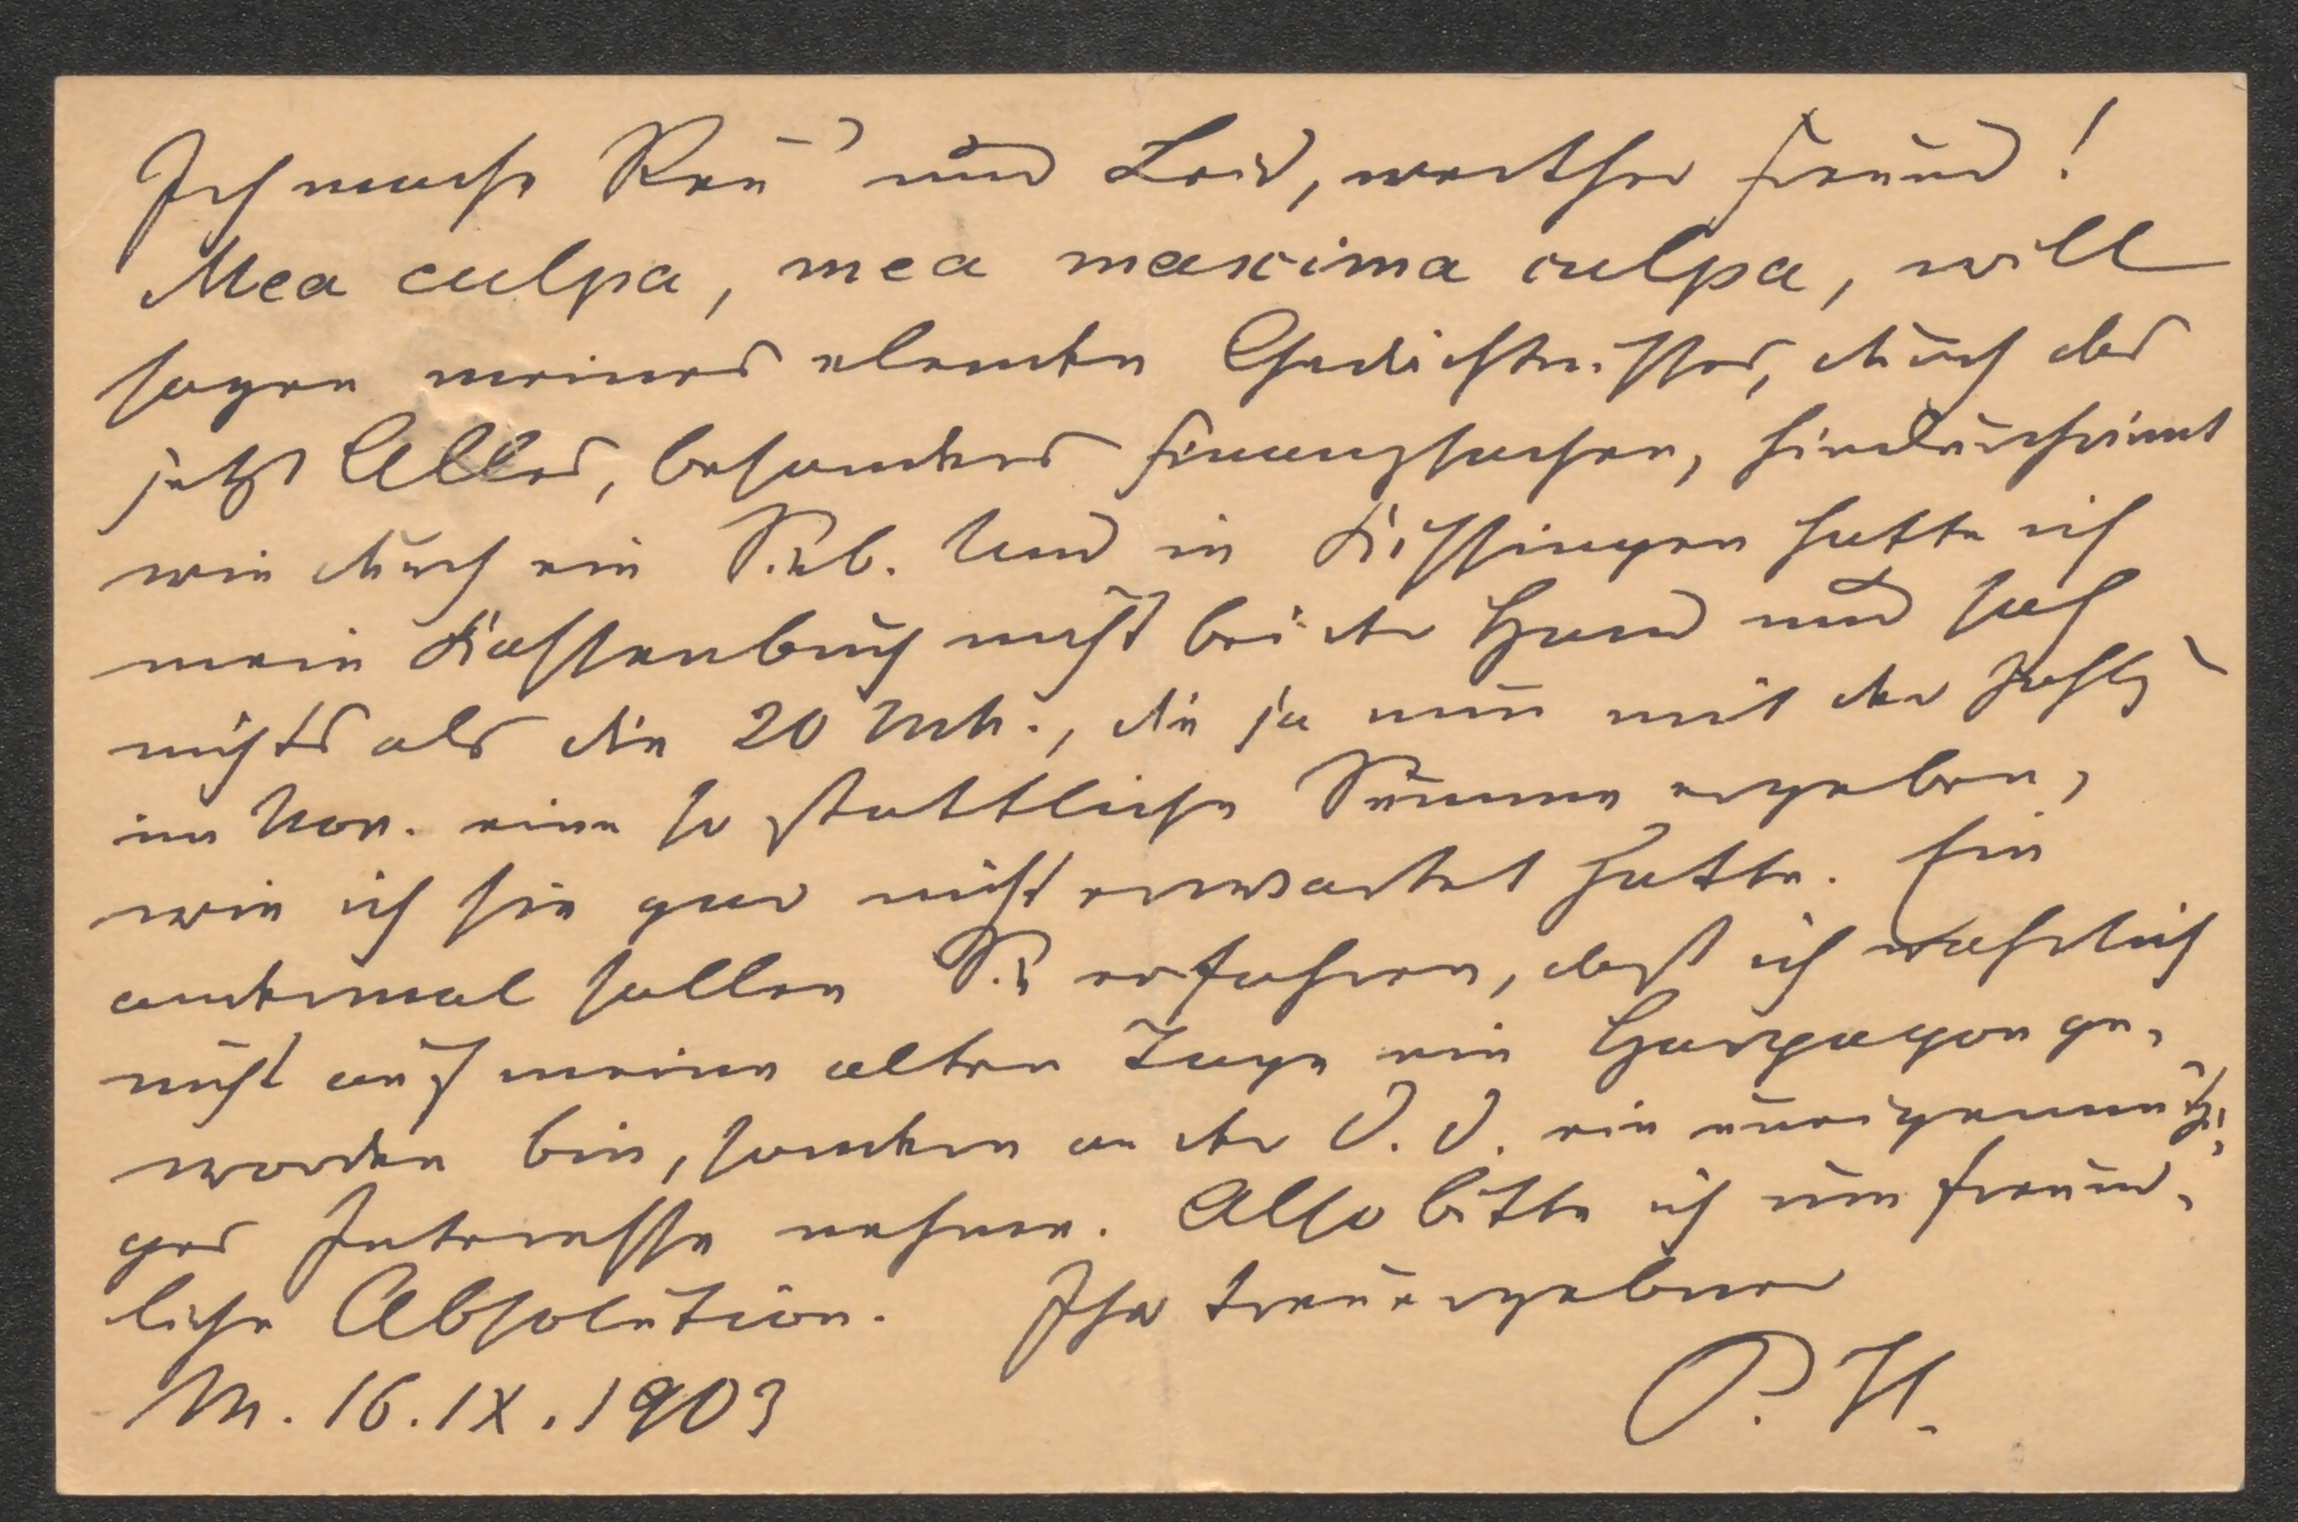 Ich mache Reu' und Leid, werther Freund!
Mea culpa, mea maxima culpa, will
sagen meines elenden Gedächtnisses, durch das
jetzt Alles, besonders Finanzsachen, hindurchrinnt
wie durch ein Sieb. Und in Kissingen hatte ich
mein Kassenbuch nicht bei der Hand und sah
nichts als die 20 Mk., die ja nun mit der Zahlg
im Nov. eine so stattliche Summe ergeben,
wie ich sie gar nicht erwartet hatte. Ein
andermal sollen Sie erfahren, daß ich wahrlich
nicht auf meine alten Tage ein Harpagon ge-
worden bin, sondern an der D. D. ein uneigennützi-
ges Interesse nehme. Also bitte ich um freund-
liche Absolution. Ihr treuergebner
M. 16.IX.1903 P. H.